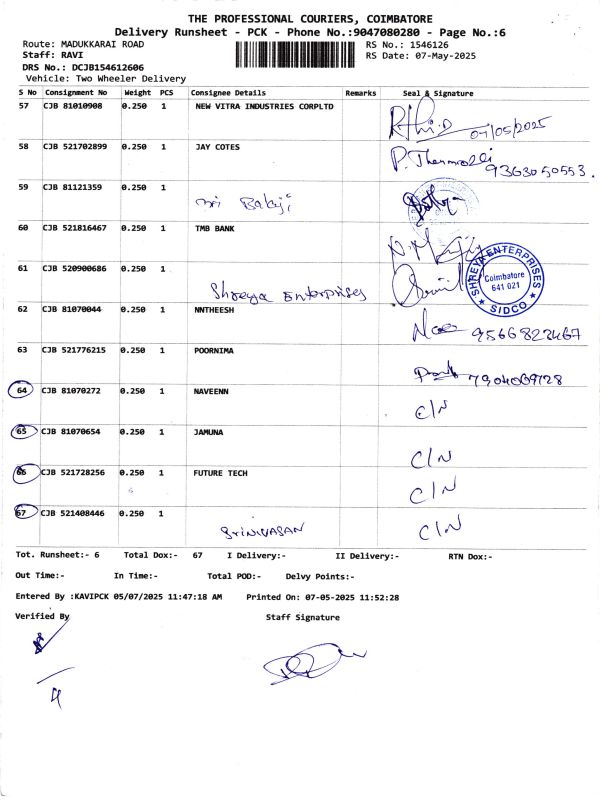 THE PROFESSIONAL COURIERS, COIMBATORE
Delivery Runsheet - PCK - Phone No.:9047080280 - Page No.:6
Route: MADUKKARAI ROAD RS No.: 1546126
Staff: RAVI RS Date: 07-May-2025
DRS No.: DCJB154612606
Vehicle: Two Wheeler Delivery
S No Consignment No Weight PCS Consignee Details Remarks Seal & Signature
57 CJB 81010908 0.250 1 NEW VITRA INDUSTRIES CORPLTD
07/05/2025
58 CJB 521702899 0.250 1 JAY COTES
9363050553.
59 CJB 81121359 0.250 1
Sri Balaji
60 CJB 521816467 0.250 1 TMB BANK
61 CJB 520900686 0.250 1
Shreyja Enterprises
SHREYA ENTERPRISES
Coimbatore
641 021
SIDCO
62 CJB 81070044 0.250 1 NNTHEESH
9566822467
63 CJB 521776215 0.250 1 POORNIMA
64 CJB 81070272 0.250 1 NAVEENN
C/N
65 CJB 81070654 0.250 1 JAMUNA
C/N
66 CJB 521728256 0.250 1 FUTURE TECH
C/N
67 CJB 521408446 0.250 1
SRINIVASAN C/N
Tot. Runsheet:- 6 Total Dox:- 67 I Delivery:- II Delivery:- RTN Dox:-
Out Time:- In Time:- Total POD:- Delvy Points:-
Entered By :KAVIPCK 05/07/2025 11:47:18 AM Printed On: 07-05-2025 11:52:28
Verified By Staff Signature